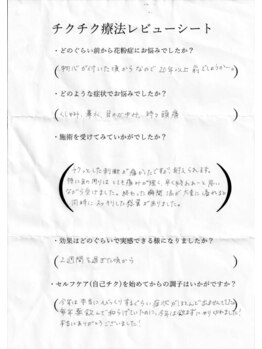 チクチク療法レビューシート
・どのぐらい前から花粉症にお悩みでしたか？
物心が付いた頃からなので20年以上前でしょうか…
・どのような症状でお悩みでしたか？
くしゃみ、鼻水、目のかゆみ、時々頭痛
・施術を受けてみていかがでしたか？
チクッとした刺激が痛かったですが耐えられます。
特に目の周りはとても痛みが強く、早く終われぁーと思い
ながら受けました。終わった瞬間涙が大量に溢れると
同時にスッキリした感覚がありました。
・効果はどのぐらいで実感できる様になりましたか？
2週間を過ぎた頃から
・セルフケア(自己チク)を始めてからの調子はいかがですか？
今年は本当にびっくりするぐらい症状がほとんど出ませんでした
毎年薬飲んで和らげていたのに、今年は飲まずにやりきれました！
本当にありがとうございました！